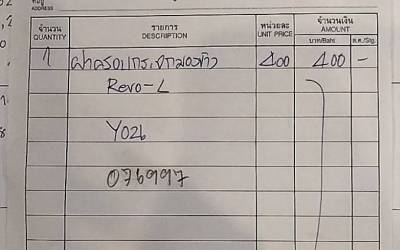 ที่อยู่
ADDRESS
จำนวน
QUANTITY
รายการ
DESCRIPTION
หน่วยละ
UNIT PRICE
จำนวนเงิน
AMOUNT
บาท/Baht
ส.ต./Stg.
1 ฝาครอบกระจกมองข้าง 400 400 -
Revo-L
Y026
076997